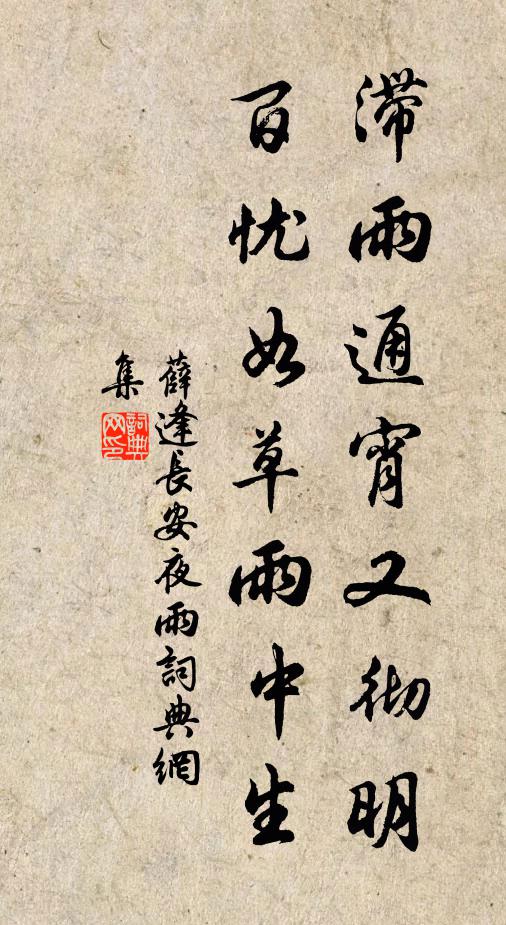 滞雨通宵又彻明
百忧如草雨中生
薛逢长安夜雨詞典網
集
詞典
网印